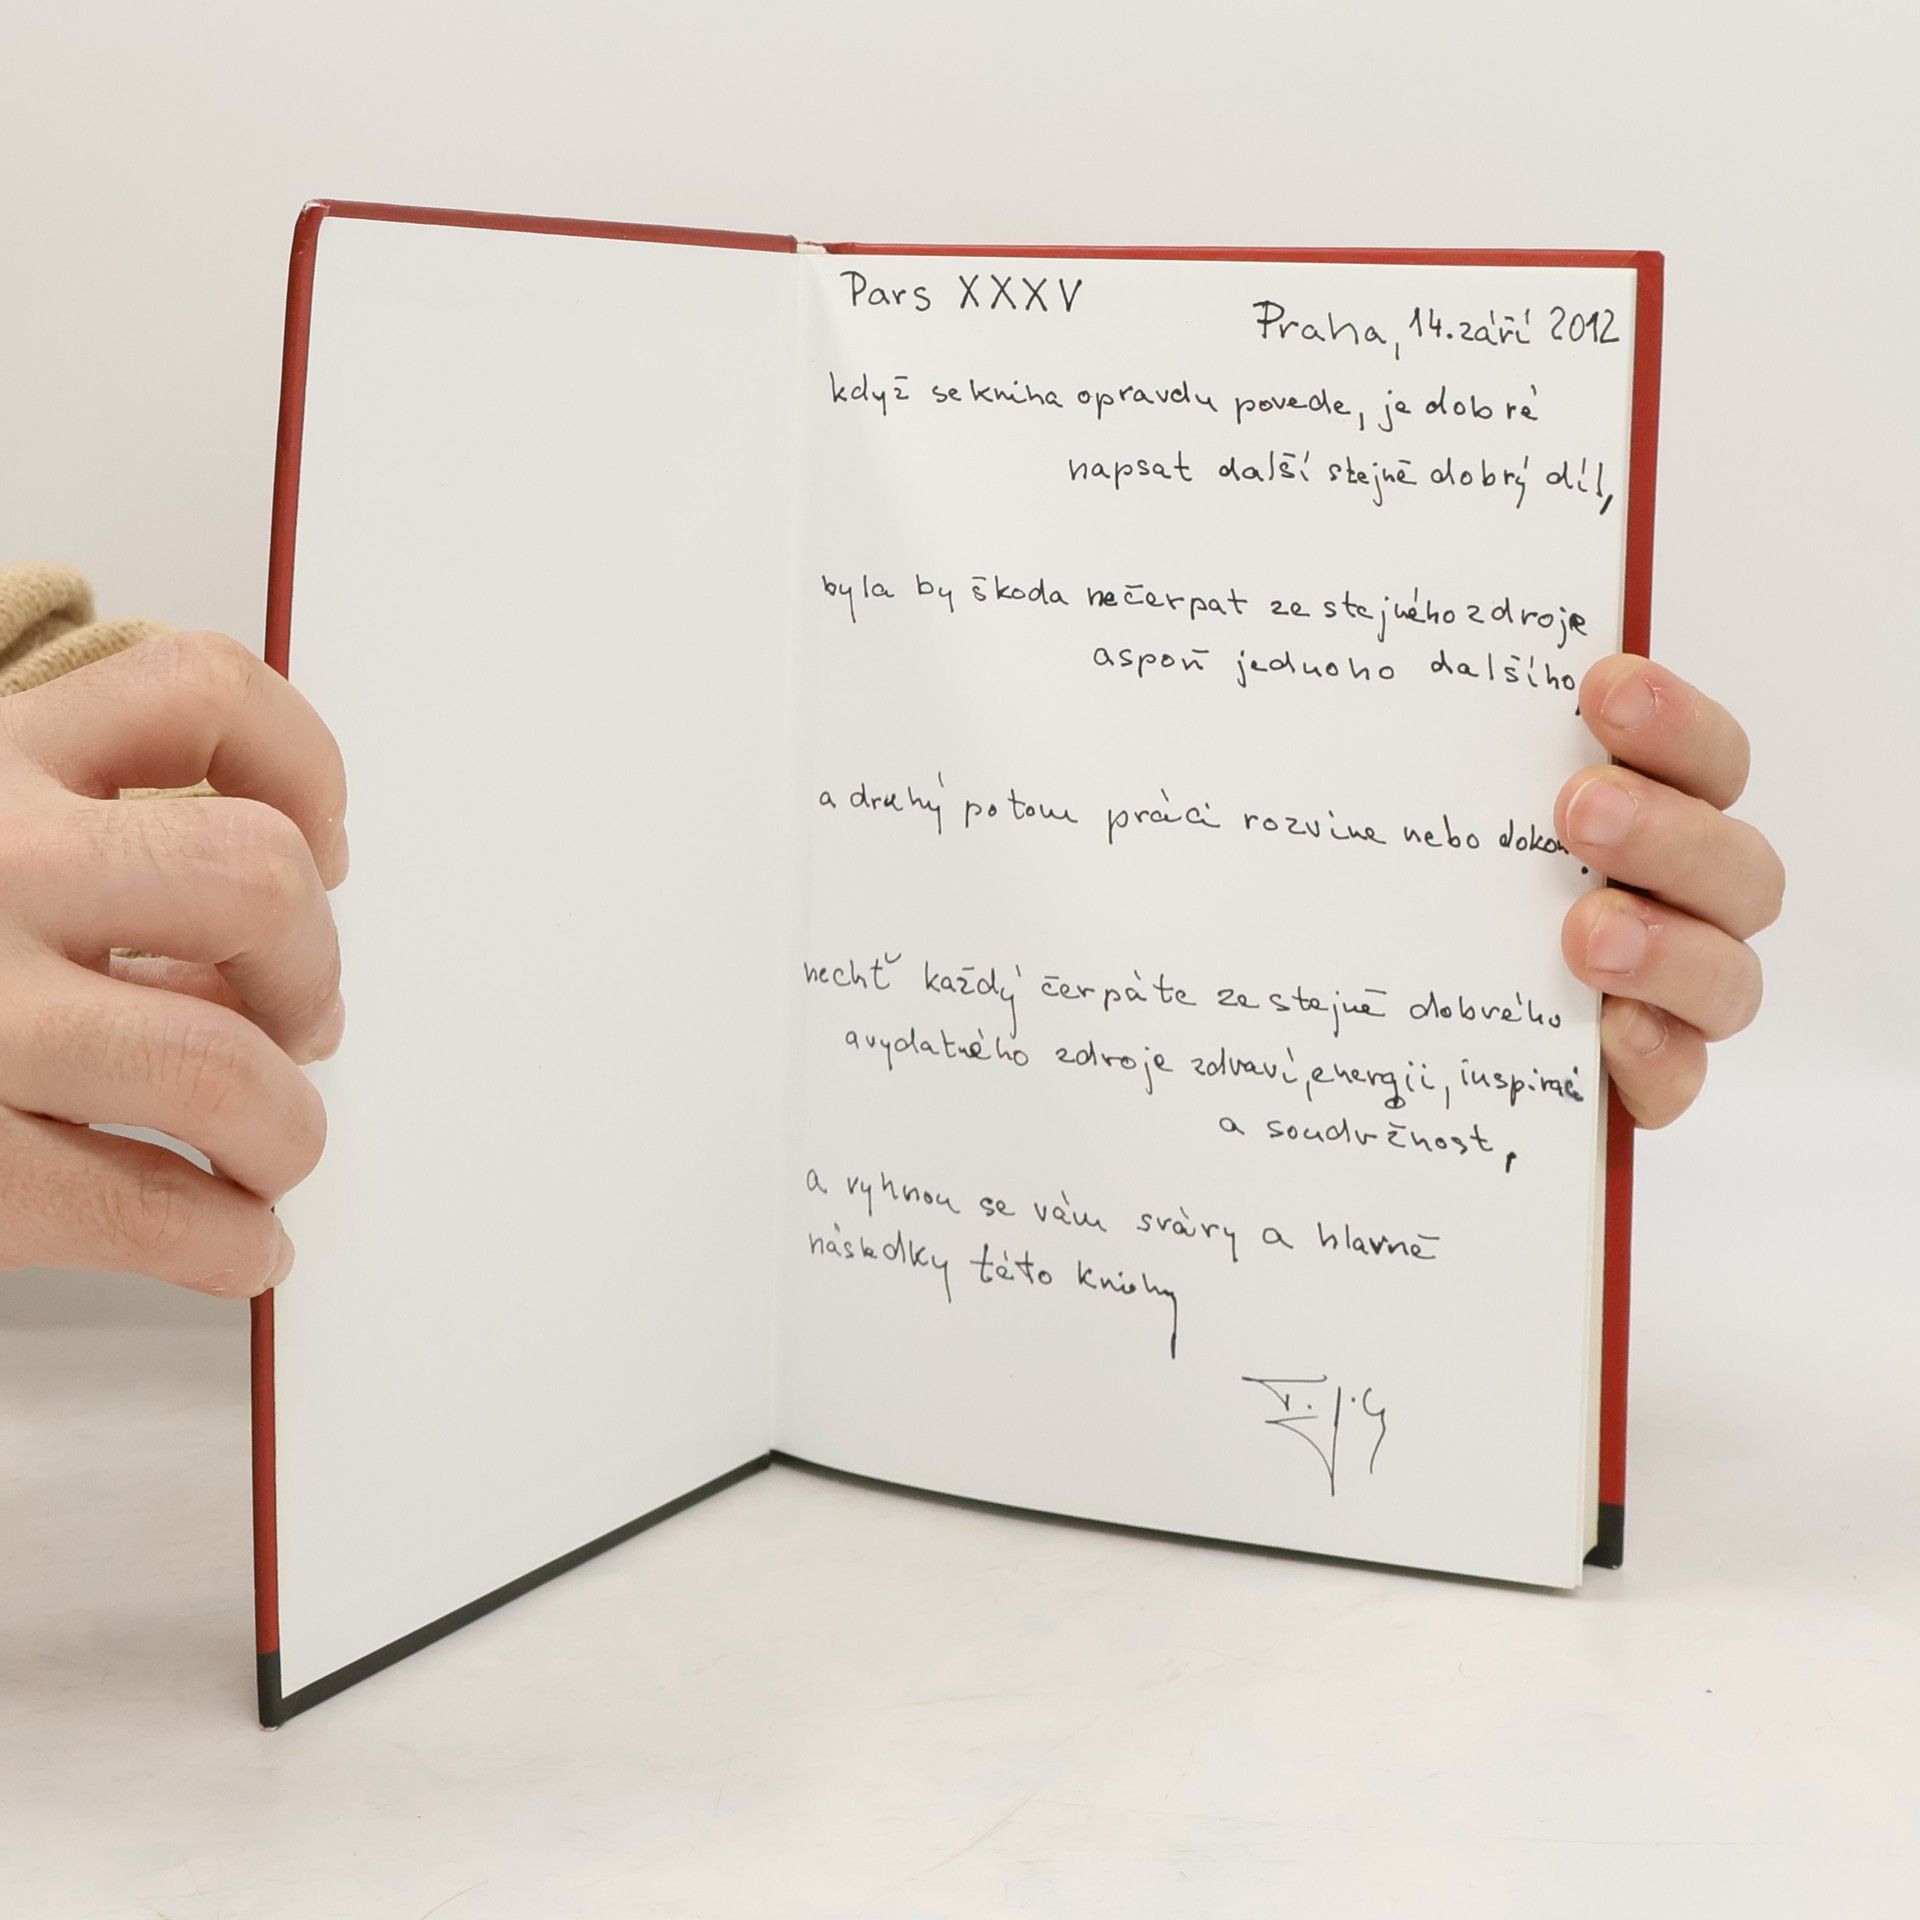 Pars XXXV
Praha, 14. září 2012
když se kniha opravdu povede, je dobré
napsat další stejně dobrý díl,
byla by škoda nečerpat ze stejného zdroje
aspoň jednoho dalšího,
a druhý potom práci rozvine nebo dokon
nechť každý čerpáte ze stejně dobrého
a vydatného zdroje zdraví, energii, inspiraci
a soudržnost,
a vyhnou se vám sváry a hlavně
následky této knihy